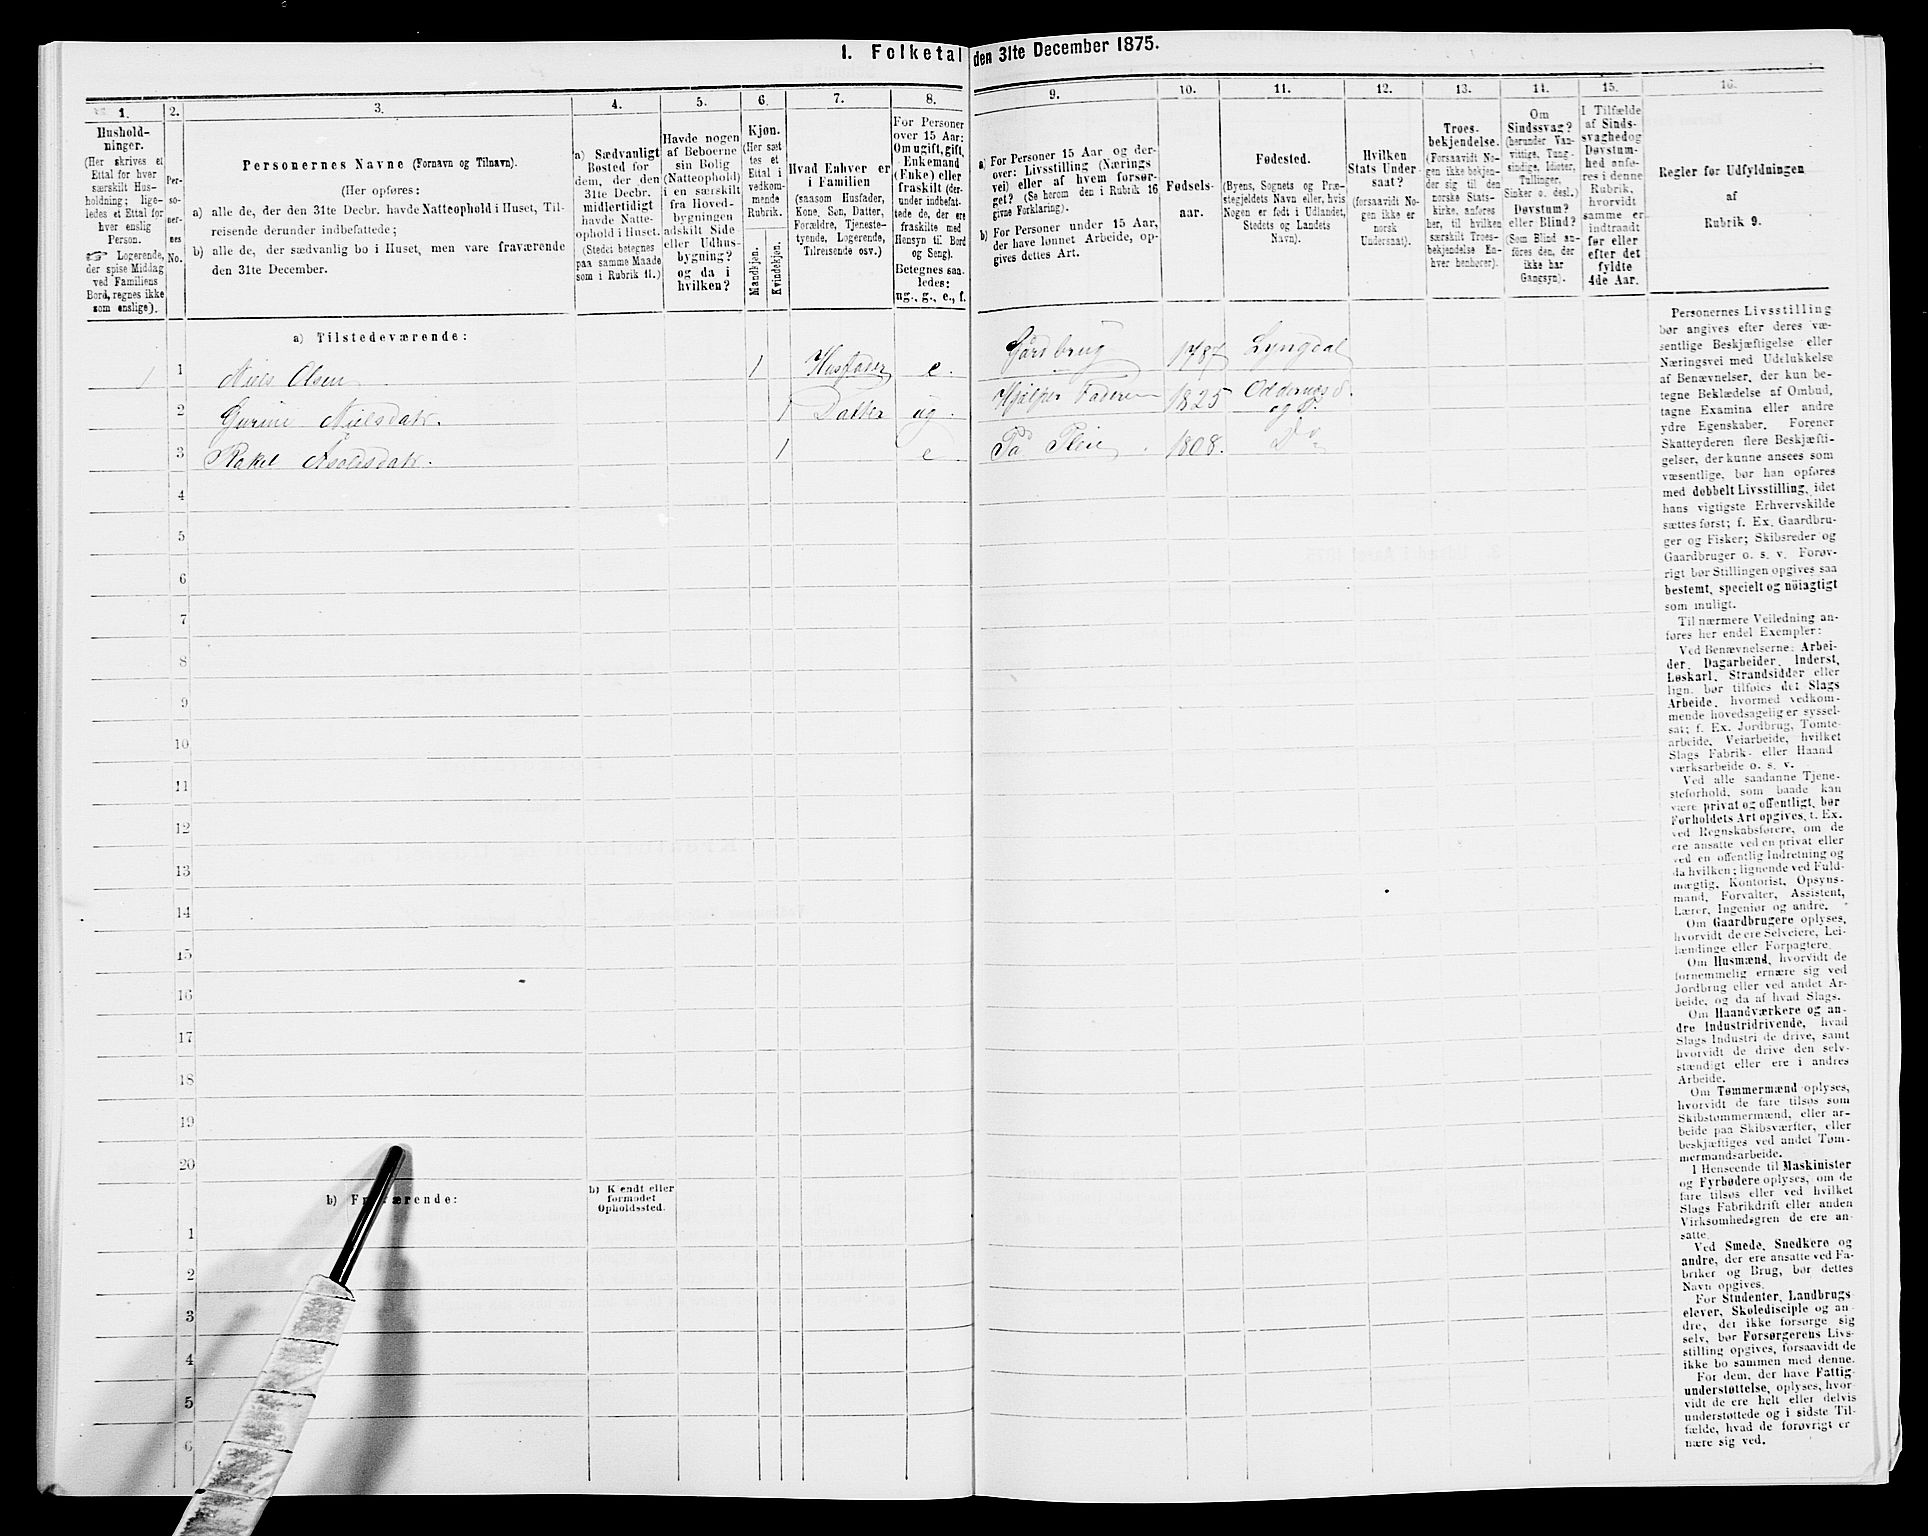 1. Folketal den 31te December 1875.
1.
Hushold-
ninger.
(Her skrives et
Ettal for hver
særskilt Hus-
holdning; lige-
ledes et Ettal for
hver enslig
Person.
☞ Logerende,
der spise Middag
ved Familiens
Bord, regnes ikke
som enslige).
2.
Per-
so-
ner-
nes
No.
3.
Personernes Navne (Fornavn og Tilnavn).
(Her opføres:
a) alle de, der den 31te Decbr. havde Natteophold i Huset, Til-
reisende derunder indbefattede;
b) alle de, der sædvanlig bo i Huset, men vare fraværende
den 31te December.
4.
a) Sædvanligt
Bosted for
dem, der den
31te Decbr.
midlertidigt
havde Natte-
ophold i Huset.
(Stedet betegnes
paa samme Maade
som i Rubrik 11.)
5.
Havde nogen
af Beboerne
sin Bolig
(Natteophold)
i en særskilt
fra Hoved-
bygningen
adskilt Side
eller Udhus-
bygning?
og da i
hvilken?
6.
Kjøn.
(Her sæt
tes et
Ettal i
vedkom-
mende
Rubrik.
Mandkjøn.
Kvindekjøn.
7.
Hvad Enhver er
i Familien
(saasom Husfader,
Kone, Søn, Datter,
Forældre, Tjeneste-
tyende, Logerende,
Tilreisende osv.)
8.
For Personer
over 15 Aar:
Om ugift, gift,
Enkemand
(Enke) eller
fraskilt (der-
under indbefat-
tede de, der ere
fraskilte med
Hensyn til Bord
og Seng).
Betegnes saa-
ledes:
ug., g., e., f.
9.
a) For Personer 15 Aar og der-
over: Livsstilling (Nærings
vei) eller af hvem forsør-
get? (Se herom den i Rubrik 16
givne Forklaring).
b) For Personer under 15 Aar,
der have lønnet Arbeide, op-
gives dettes Art.
10.
Fødsels-
aar.
11.
Fødested.
(Byens, Sognets og Præ-
stegjeldets Navn eller, hvis
Nogen er født i Udlandet,
Stedets og Landets
Navn).
12.
Hvilken
Stats Under-
saat?
(forsaavidt No-
gen ikke er
norsk
Undersaat).
13.
Troes-
bekjendelse.
(Forsaavidt No-
gen ikke bekjen-
der sig til den
norske Stats-
kirke, anføres
her, til hvilken
særskilt Troes-
bekjendelse En-
hver henhører).
14.
Om
Sindssvag?
(herunder Van-
vittige, Tung-
sindige, Idioter,
Tullinger,
Sinker o. desl.)
Døvstum?
eller Blind?
(Som Blind an-
føres den, der
ikke har
Gangsyn).
15.
I Tilfælde
af Sinds-
svaghed og
Døvstum-
hed anfø-
res i denne
Rubrik,
hvorvidt
samme er
indtraadt
før eller
efter det
fyldte
4de Aar.
16.
Regler for Udfyldningen
af
Rubrik 9.
a) Tilstedeværende:
1 1 Niels Olsen 1 Husfader e. Gårdbrug 1787 Lyngdal
2 Gurine Nielsdatr. 1 Datter ug. Hjælper Faderen 1825 Oddernæs S. og G.
3 Rakel Asolesdatr. 1 e På Pleie. 1808. Do
4
5
6
7
8
9
10
11
12
13
14
15
16
17
18
19
20
b) Fraværende:
b) Kendt eller
formodet
Opholdssted.
1
2
3
4
5
6
Personernes Livsstilling
bør angives efter deres væ-
sentlige Beskjæftigelse eller
Næringsvei med Udelukkelse
af Benævnelser, der kun be-
tegne Beklædelse af Ombud,
tagne Examina eller andre
ydre Egenskaber. Forener
Skatteyderen flere Beskjæfti-
gelser, der kunne ansees som
væsentlige, bør han opføres
med dobbelt Livsstilling, idet
hans vigtigste Erhvervskilde
sættes først; f. Ex. Gaardbru-
ger og Fisker; Skibsreder og
Gaardbruger o. s. v. Forøv-
rigt bør Stillingen opgives saa
bestemt, specielt og nøiagtigt
som muligt.
Til nærmere Veiledning an-
føres her endel Exempler:
Ved Benævnelserne: Arbei-
der, Dagarbeider, Inderst,
Løskarl, Strandsidder eller
lign. bør tilføies det Slags
Arbeide, hvormed vedkom-
mende hovedsagelig er syssel-
sat; f. Ex. Jordbrug, Tomte-
arbeide, Veiarbeide, hvilket
Slags Fabrik- eller Haand
værksarbeide o. s. v.
Ved alle saadanne Tjene-
steforhold, som baade kan
være privat og offentligt, bør
Forholdets Art opgives, t. Ex.
ved Regnskabsførere, om de
ere ansatte ved en privat eller
ved en offentlig Indretning og
da hvilken; lignende ved Fuld-
mægtig, Kontorist, Opsyns-
mand, Forvalter, Assistent,
Lærer, Ingeniør og andre.
Om Gaardbrugere oplyses,
hvorvidt de ere Selveiere, Lei-
lændinge eller Forpagtere.
Om Husmænd, hvorvidt de
fornemmelig ernære sig ved
Jordbrug eller ved andet Ar-
beide, og da af hvad Slags.
Om Haandværkere og an-
dre Industridrivende, hvad
Slags Industri de drive, samt
hvorvidt de drive den selv-
stændigt eller ere i andres
Arbeide.
Om Tømmermænd oplyses,
hvorvidt de fare tilsøs som
Skibstømmermænd, eller ar-
beide paa Skibsværfter, eller
beskjæftiges ved andet Tøm-
mermandsarbeide.
I Henseende til Maskinister
og Fyrbødere oplyses, om de
fare tilsøs eller ved hvilket
Slags Fabrikdrift eller anden
Virksomhedsgren de ere an-
satte.
Ved Smede, Snedkere og
andre, der ere ansatte ved Fa-
briker og Brug, bør dettes
Navn opgives.
For Studenter, Landbrugs-
elever, Skoledisciple og an-
dre, der ikke forsørge sig
selv, bør Forsørgerens Livs-
stilling opgives, forsaavidt de
ikke bo sammen med denne.
For dem, der have Fattig-
understøttelse, oplyses, hvor-
vidt de ere helt eller delvis
understøttede og i sidste Til-
fælde, hvad de forøvrigt er
nære sig ved.